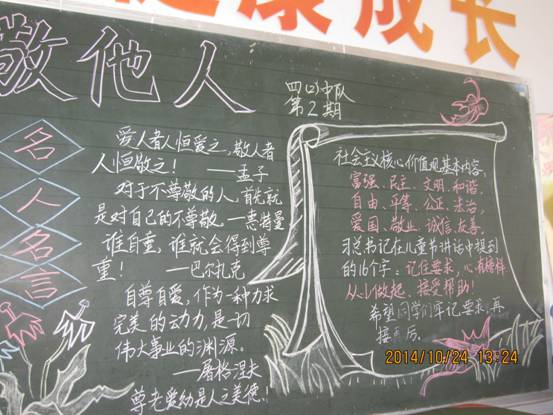 健康成长
敬他人
四(2)中队
第2期
名人名言
爱人者人恒爱之,敬人者
人恒敬之! ——孟子
对于不尊敬的人,首先就
是对自己的不尊敬。——惠特曼
谁自重,谁就会得到尊
重! ——巴尔扎克
自尊自爱,作为一种力求
完美的动力,是一切
伟大事业的渊源。
屠格涅夫
尊老爱幼是人之美德!
社会主义核心价值观基本内容:
富强、民主、文明、和谐、
自由、平等、公正、法治,
爱国、敬业、诚信、友善。
习总书记在儿童节讲话中提到
的16个字:记住要求,心有榜样
从小做起,接受帮助!
希望同学们牢记要求,再
接再厉。
2014/10/24 13:24